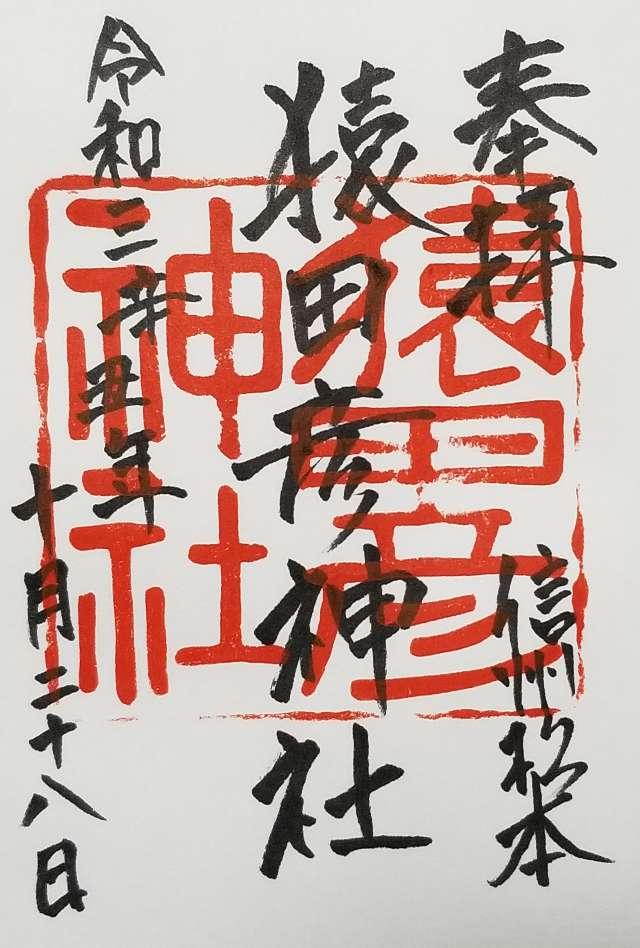 奉拝
信州松本
猿田彦神社
令和三辛丑年
十月二十八日
猿田彦
神社